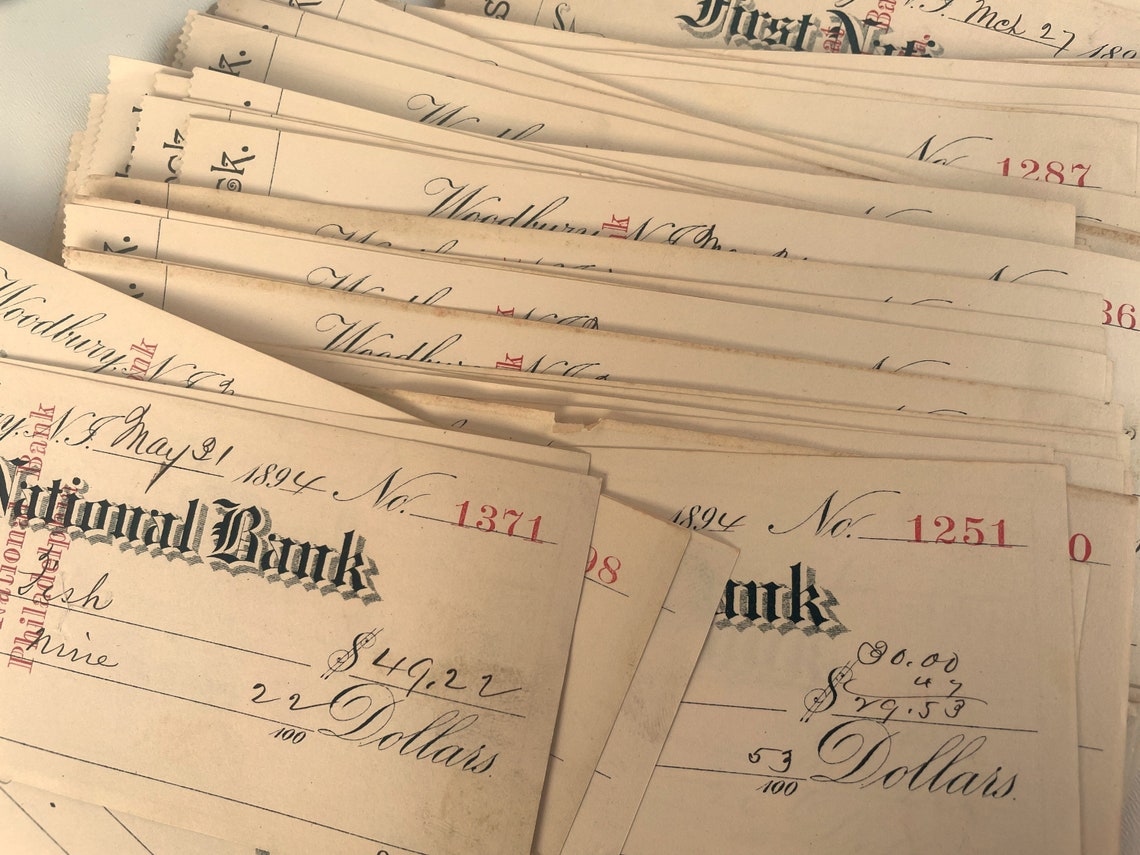 First Nati
N.J. Mch 27 189
No. 1287
k.
ck.
Woodbury, N.J.
k.
36
k.
k.
Woodbury, N.J.
nk
y, N.J. May 31 1894 No. 1371
National Bank
Fish
nine
$49.22
22/100 Dollars
National Bank
Philadelphia
98
1894 No. 1251
ank
30.00
47
$29.53
53/100 Dollars
0